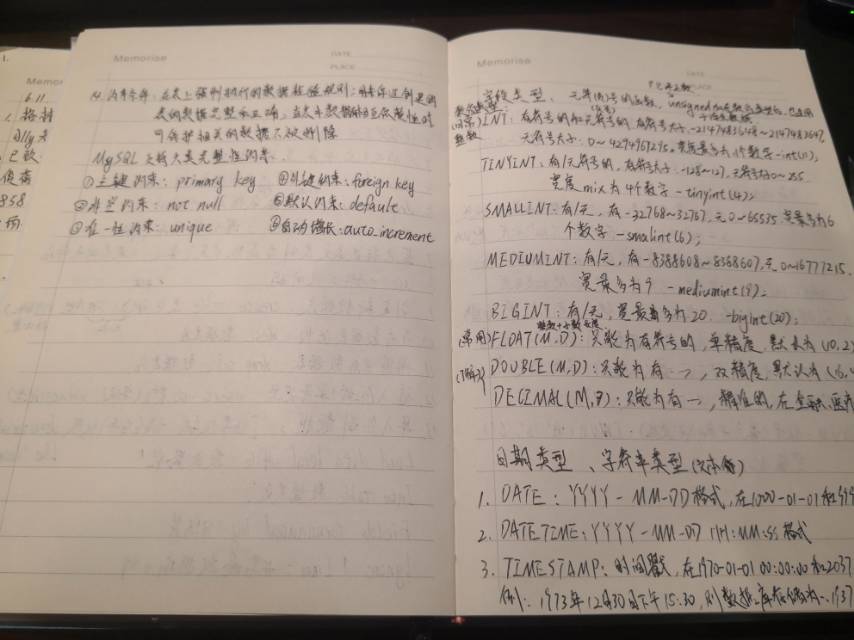 1.
Memor
6.11
858
Memorise
DATE
PLACE
14. 约束条件：在表上强制执行的数据校验规则；用来保证创建的
表的数据完整和正确，
可保护相关的数据不被删除
MySQL 六大类完整性约束
①主键约束：primary key ②外键约束：foreign key
③非空约束：not null ④默认约束：defaule
⑤唯一性约束：unique ⑥自动增长：auto_increment
Memorise
DATE
PLACE
字段类型、元符(有)号的函数，unsigned
(常)INT：有符号的和无符号的，有符号大小：-2147483648~2147483647,
整数 无符号大小：0~4294967295。宽度最多为11个数字-int(11);
TINYINT：有/无符号的，有符号大小：-128~127，无符号为0~255
宽度mix为4个数字-tinyint(4);
SMALLINT：有/无，有-32768~32767，无0~65535 宽最多为6
个数字-smalint(6);
MEDIUMINT：有/无，有-8388608~8388607，无0~16777215.
宽最多为9 -mediumint(9);
BIGINT：有/无，宽最多为20. -bigint(20);
(常用)FLOAT(M,D)：只能为有符号的，单精度，默认为(10,2
(了解)DOUBLE(M,D)：只能为有 一，双精度，默认为(16,4
DECIMAL(M,D)：只能为有一，精准的，在金融、
日期类型、字符串类型(文本
1. DATE：YYYY-MM-DD格式，在1000-01-01和
2. DATETIME：YYYY-MM-DD HH:MM:SS格式
3. TIMESTAMP：时间戳，在1970-01-01 00:00:00和2037
例：1973年12月30日下午15:30，则数据库存储为：1937